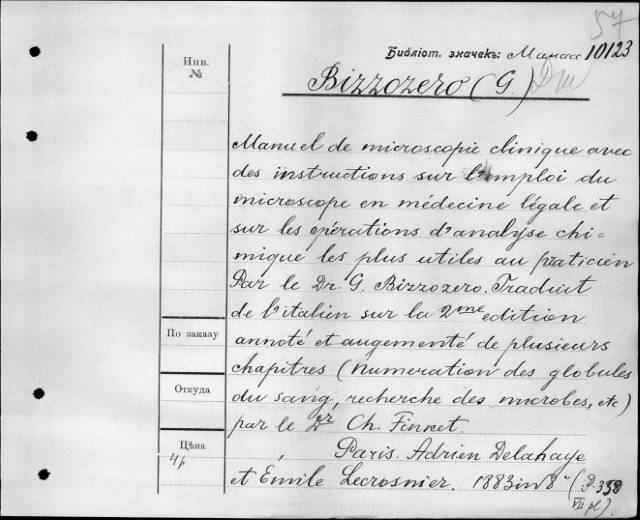 57
Библіот. значекъ: Манасс 10123
Инв.
№
Bizzozero (G.)
Manuel de microscopie clinique avec
des instructions sur l'emploi du
microscope en médecine légale et
sur les opérations d'analyse chi=
mique les plus utiles au praticien
Par le Dr. G. Bizzozero. Traduit
de l'italien sur la 2me edition
annoté et augementé de plusieurs
chapitres (numeration des globules
du sang, recherche des microbes, etc)
par le Dr Ch. Firket.
Paris. Adrien Delahaye
et Emile Lecrosnier. 1883 in 8° (P. 358
VII pl).
По заказу
Откуда
Цѣна
4р